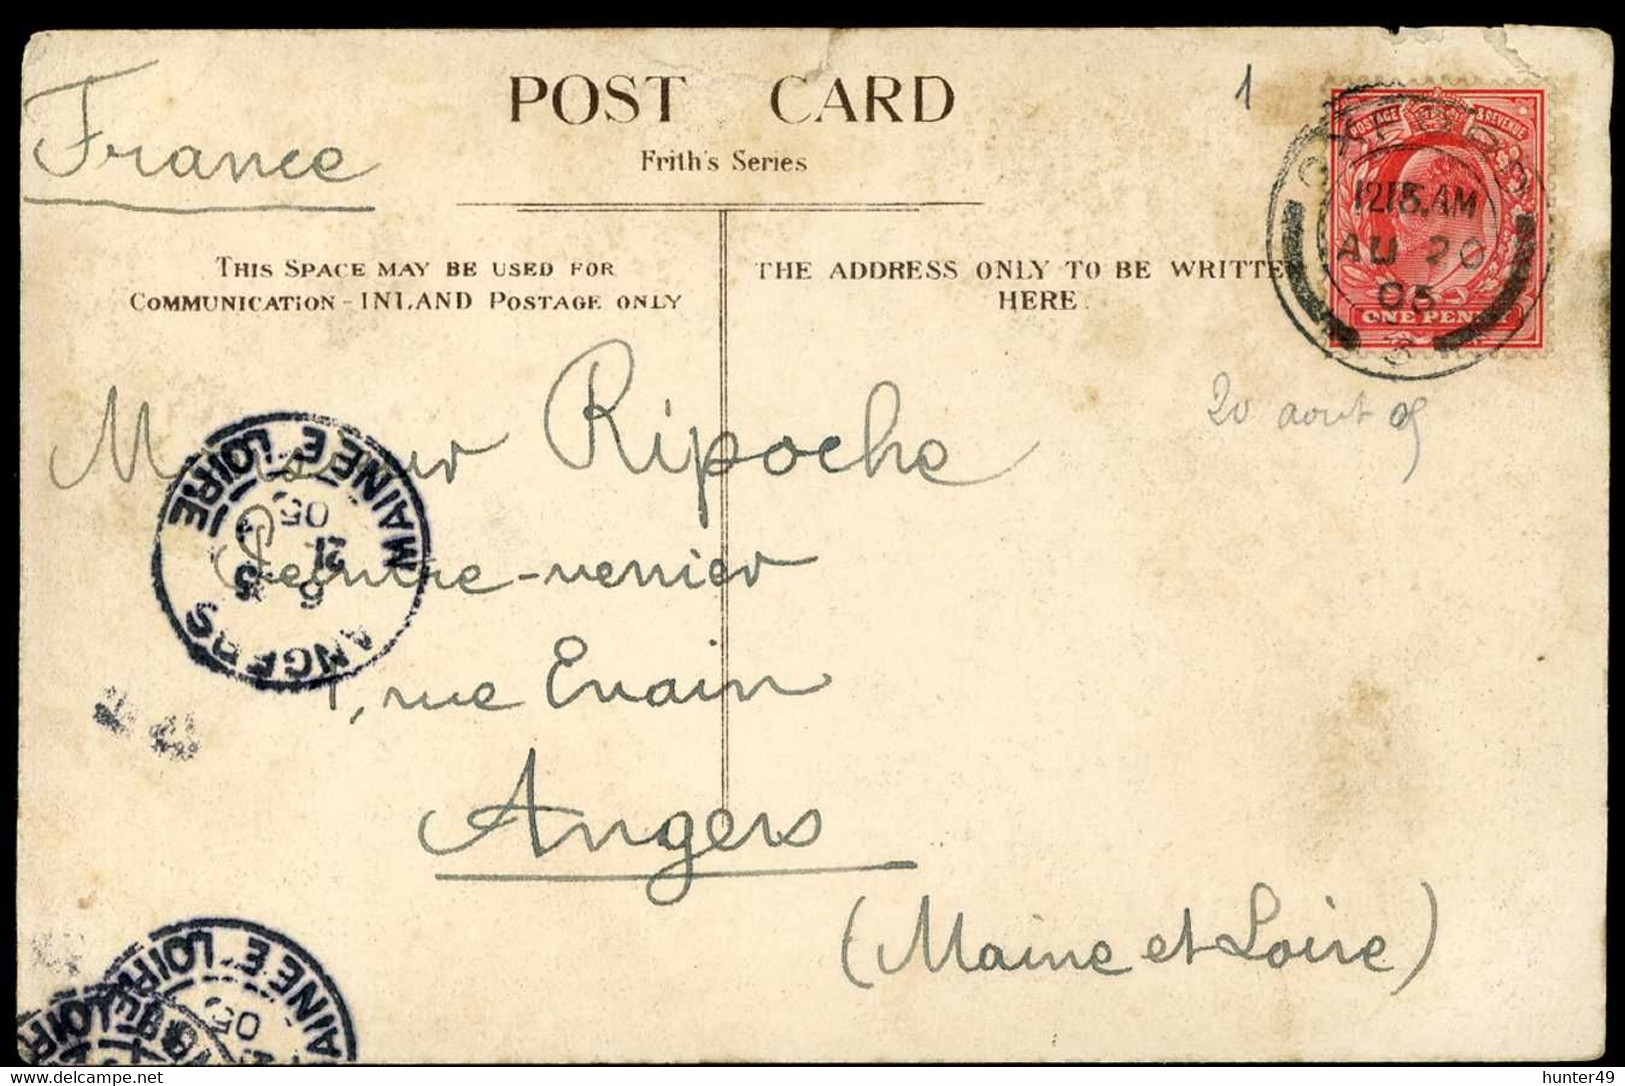 France
POST CARD
Frith's Series
1
POSTAGE & REVENUE
12.15.AM
AU 20
05
3
ONE PENNY
THIS SPACE MAY BE USED FOR
COMMUNICATION - INLAND POSTAGE ONLY
THE ADDRESS ONLY TO BE WRITTE
HERE.
20 aout 05
Monsieur Ripoche
Peintre-verrier
rue Evain
Angers
(Maine et Loire)
ANGERS
MAINE E LOIRE
21
05
MAINE E LOIRE
05
hunter49